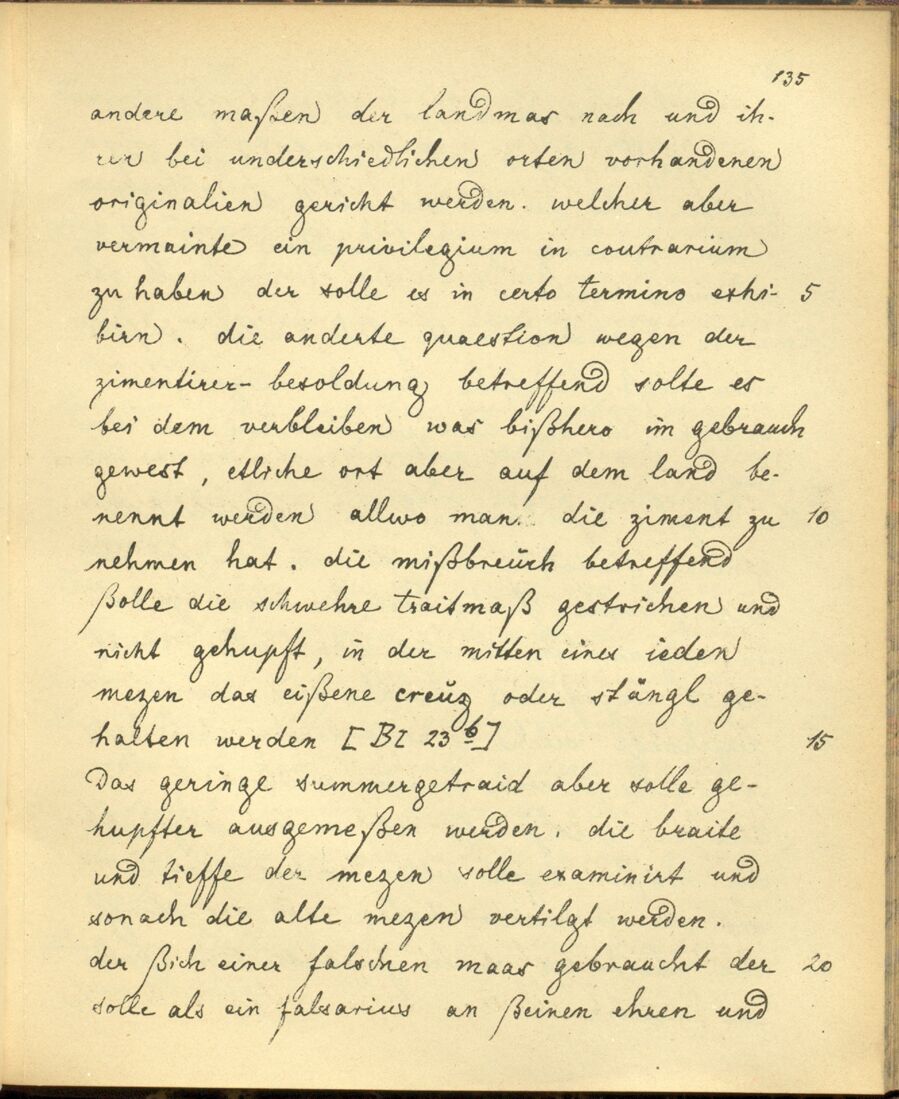 135
andere maßen der landmas nach und ih-
rer bei underschiedlichen orten vorhandenen
originalien gericht werden. welcher aber
vermainte ein privilegium in contrarium
zu haben der solle es in certo termino exhi- 5
birn. die anderte quaestion wegen der
zimentirer-besoldung betreffend solte es
bei dem verbleiben was bißhero im gebrauch
gewest, etliche ort aber auf dem land be-
nennt werden allwo man die ziment zu 10
nehmen hat. die mißbreüch betreffend
ßolle die schwehre traitmaß gestrichen und
nicht gehupft, in der mitten eines ieden
mezen das eißene creüz oder stängl ge-
halten werden [Bl 23 b] 15
Das geringe summergetraid aber solle ge-
hupfter ausgemeßen werden. die braite
und tieffe der mezen solle examinirt und
sonach die alte mezen vertilgt werden.
der ßich einer falschen maas gebraucht der 20
solle als ein falsarius an ßeinen ehren und